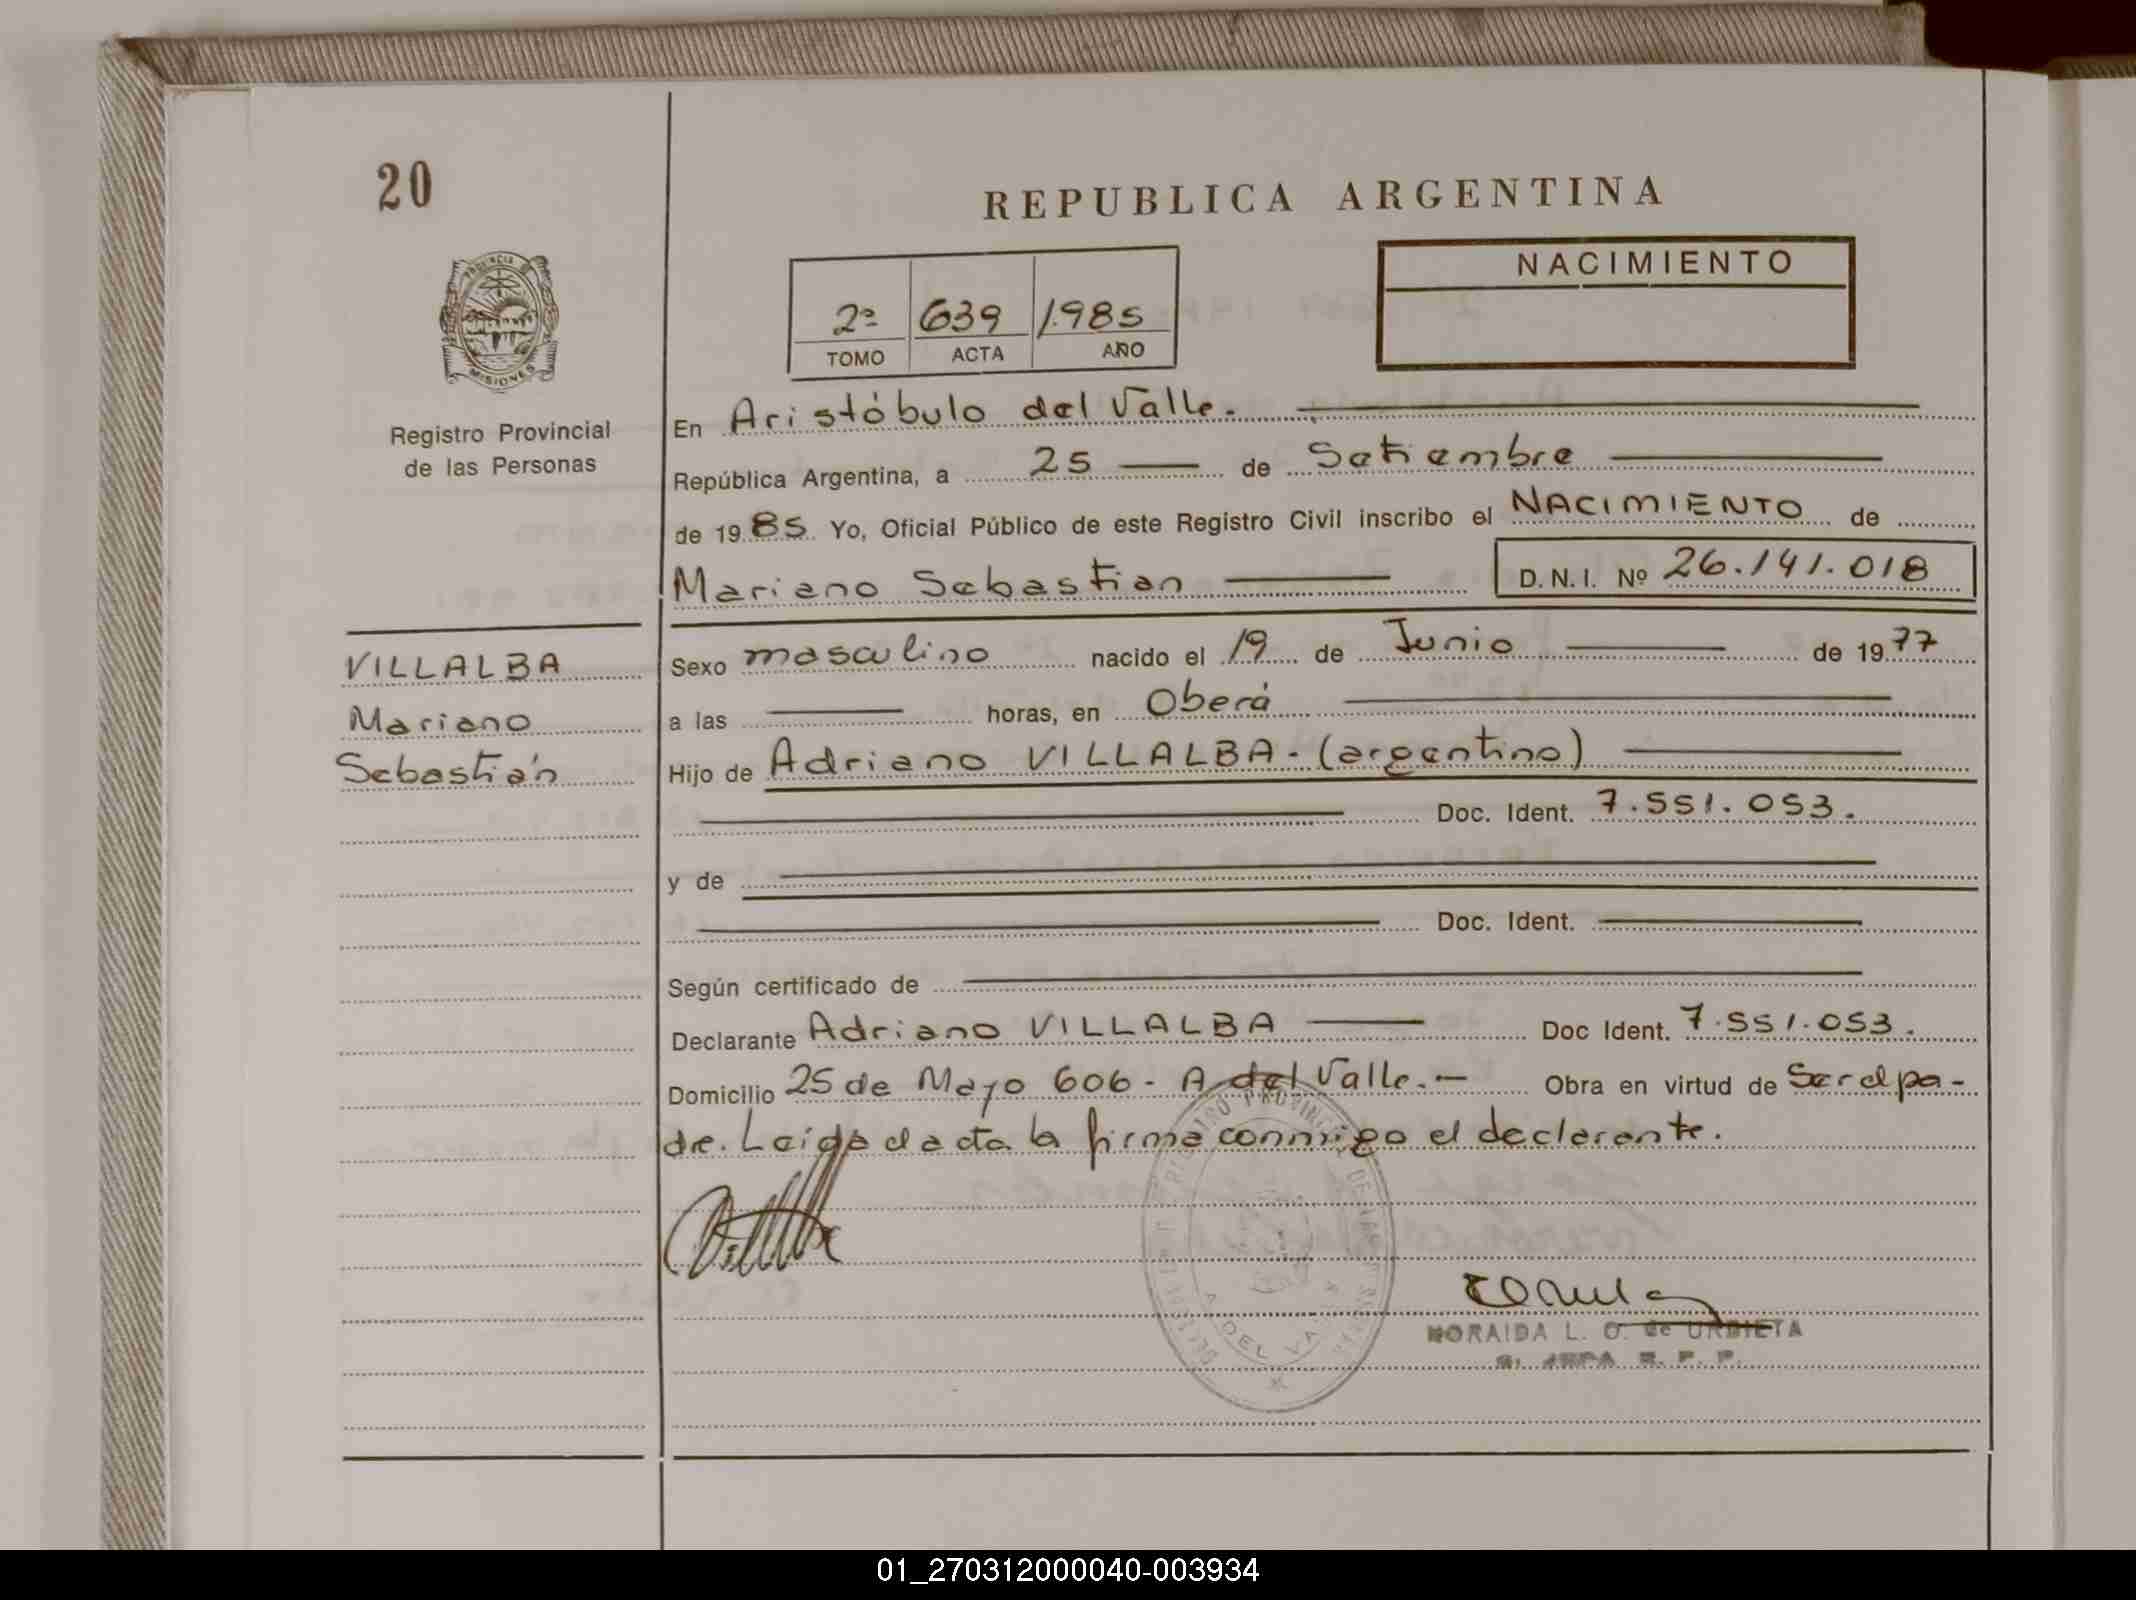 20
REPUBLICA ARGENTINA
NACIMIENTO
2º 639 1.985
TOMO ACTA AÑO
PROVINCIA DE
MISIONES
Registro Provincial
de las Personas
En Aristóbulo del Valle.
República Argentina, a 25 de Setiembre
de 1985 Yo, Oficial Público de este Registro Civil inscribo el NACIMIENTO de
Mariano Sebastian D.N.I. Nº 26.141.018
VILLALBA
Mariano
Sebastián
Sexo masculino nacido el 19 de Junio de 1977
a las horas, en Oberá
Hijo de Adriano VILLALBA - (argentino)
Doc. Ident. 7.551.053.
y de
Doc. Ident.
Según certificado de
Declarante Adriano VILLALBA Doc Ident. 7.551.053.
Domicilio 25 de Mayo 606 - A del Valle. - Obra en virtud de Ser el pa-
dre. Leída el acta la firma conmigo el declarante.
NORAIDA L. O. de URBIETA
01_270312000040-003934